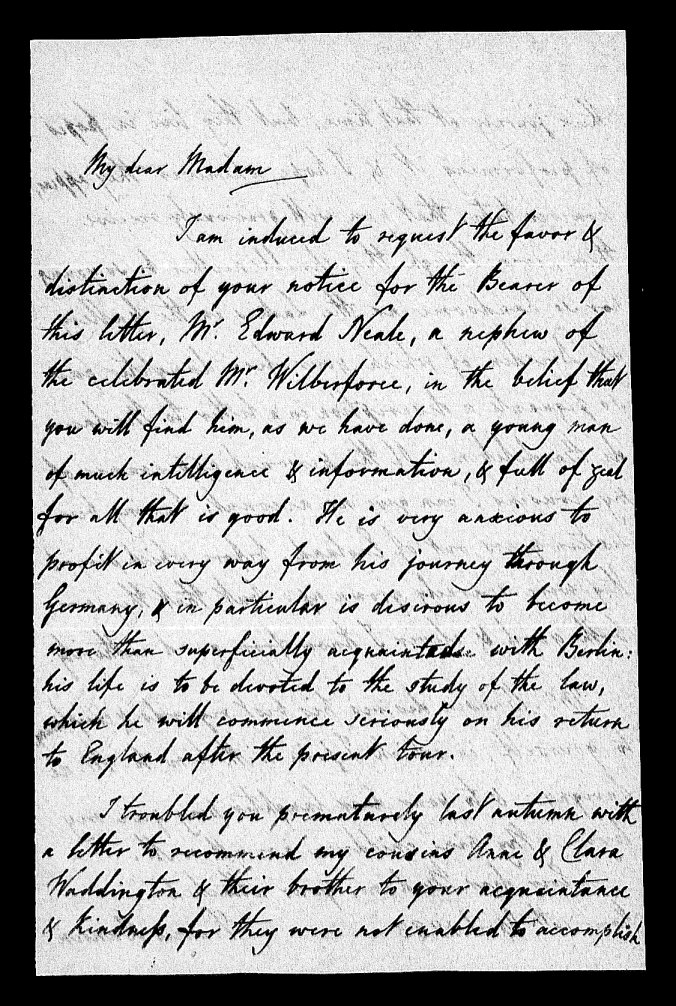 My dear Madam
I am induced to request the favor &
distinction of your notice for the Bearer of
this letter, Mr. Edward Neale, a nephew of
the celebrated Mr. Wilberforce, in the belief that
you will find him, as we have done, a young man
of much intelligence & information, & full of zeal
for all that is good. He is very anxious to
profit in every way from his journey through
Germany, & in particular is desirous to become
more than superficially acquainted with Berlin:
his life is to be devoted to the study of the law,
which he will commence seriously on his return
to England after the present tour.
I troubled you prematurely last autumn with
a letter to recommend my cousins Anne & Clara
Waddington & their brother to your acquaintance
& kindness, for they were not enabled to accomplish